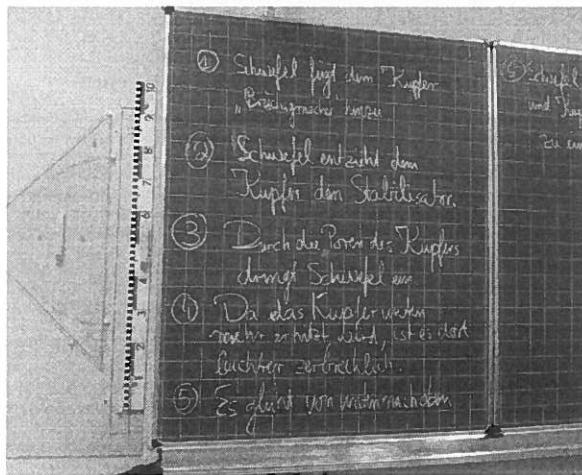 ① Schwefel fügt dem Kupfer
„Brüchigmacher" hinzu
② Schwefel entzieht dem
Kupfer den Stabilisator.
③ Durch die Poren des Kupfers
dringt Schwefel ein
④ Da das Kupfer unten
mehr erhitzt wird, ist es dort
leichter zerbrechlich.
⑤ Es glüht von unten nach oben
⑤ Schwefel
und Ku
zu ein
10
9
8
7
6
5
4
3
2
1